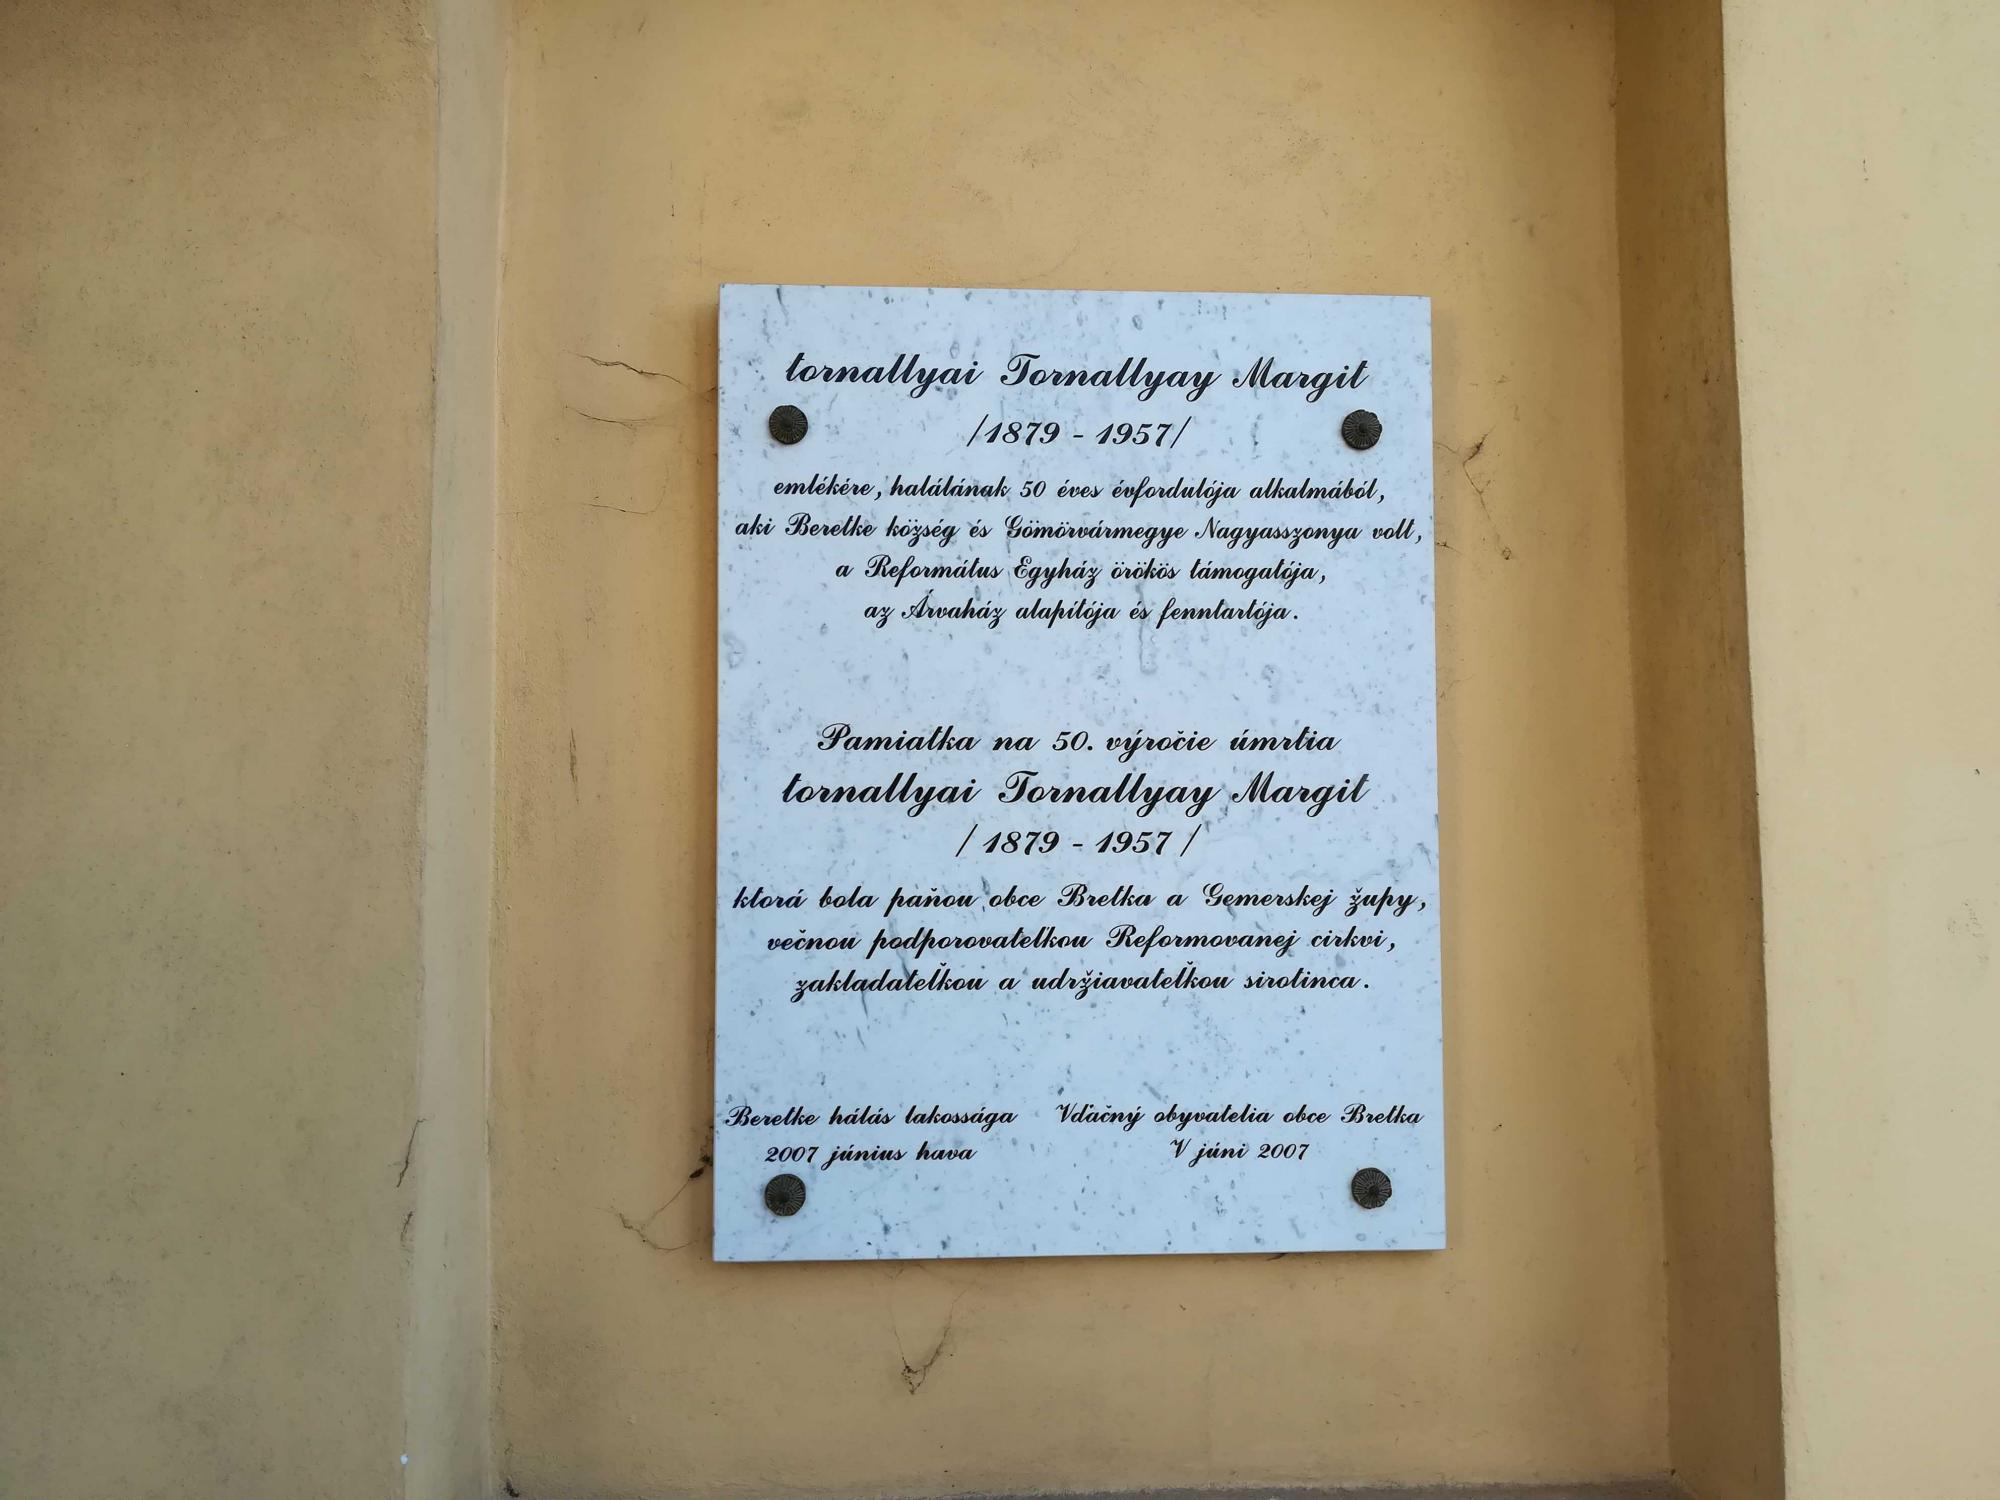 tornallyai Tornallyay Margit
/1879 - 1957/
emlékére, halálának 50 éves évfordulója alkalmából,
aki Beretke község és Gömörvármegye Nagyasszonya volt,
a Református Egyház örökös támogatója,
az Árvaház alapítója és fenntartója.
Pamiatka na 50. výročie úmrtia
tornallyai Tornallyay Margit
/ 1879 - 1957 /
ktorá bola paňou obce Bretka a Gemerskej župy,
večnou podporovateľkou Reformovanej cirkvi,
zakladateľkou a udržiavateľkou sirotinca.
Beretke hálás lakossága
2007 június hava
Vďačný obyvatelia obce Bretka
V júni 2007